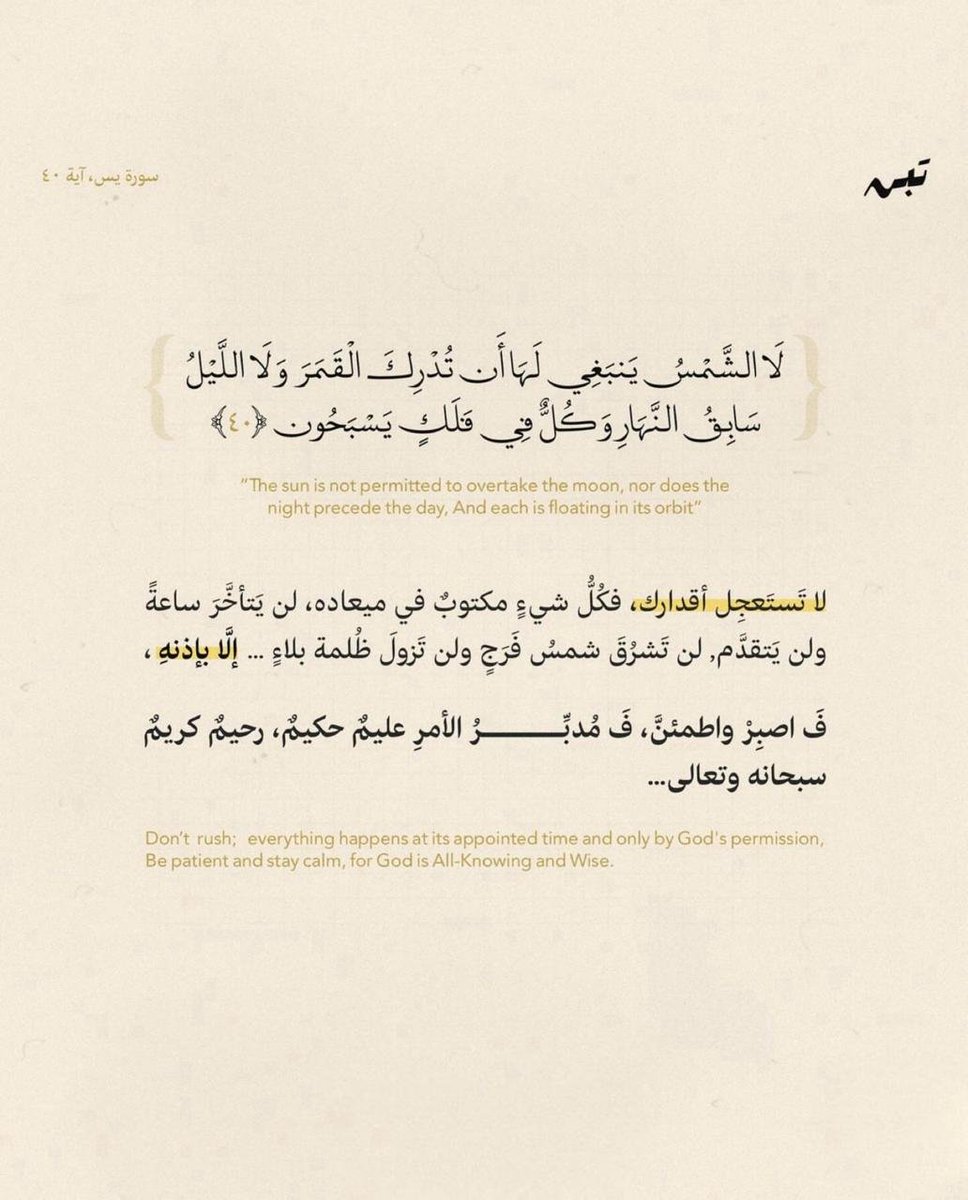 سورة يس، آية ٤٠
لَا الشَّمْسُ يَنبَغِي لَهَا أَن تُدْرِكَ الْقَمَرَ وَلَا اللَّيْلُ
سَابِقُ النَّهَارِ وَكُلٌّ فِي فَلَكٍ يَسْبَحُون ﴿٤٠﴾
"The sun is not permitted to overtake the moon, nor does the
night precede the day, And each is floating in its orbit"
لا تَستَعجِل أقدارك، فكُلُّ شيءٍ مكتوبٌ في ميعاده، لن يَتأخَّرَ ساعةً
ولن يَتقدَّم, لن تَشرُقَ شمسُ فَرَجٍ ولن تَزولَ ظُلمة بلاءٍ ... إلَّا بإذنهِ ،
فَ اصبِرْ واطمئنَّ، فَ مُدبِّـــــــرُ الأمرِ عليمٌ حكيمٌ، رحيمٌ كريمٌ
سبحانه وتعالى...
Don't rush; everything happens at its appointed time and only by God's permission,
Be patient and stay calm, for God is All-Knowing and Wise.